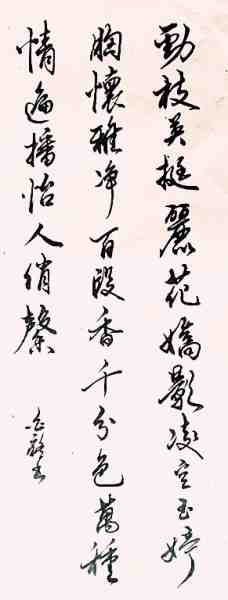 勁枝英挺麗花嬌影凌空玉婷
胸懷雅净百段香千分色萬種
情遍播怡人俏馨